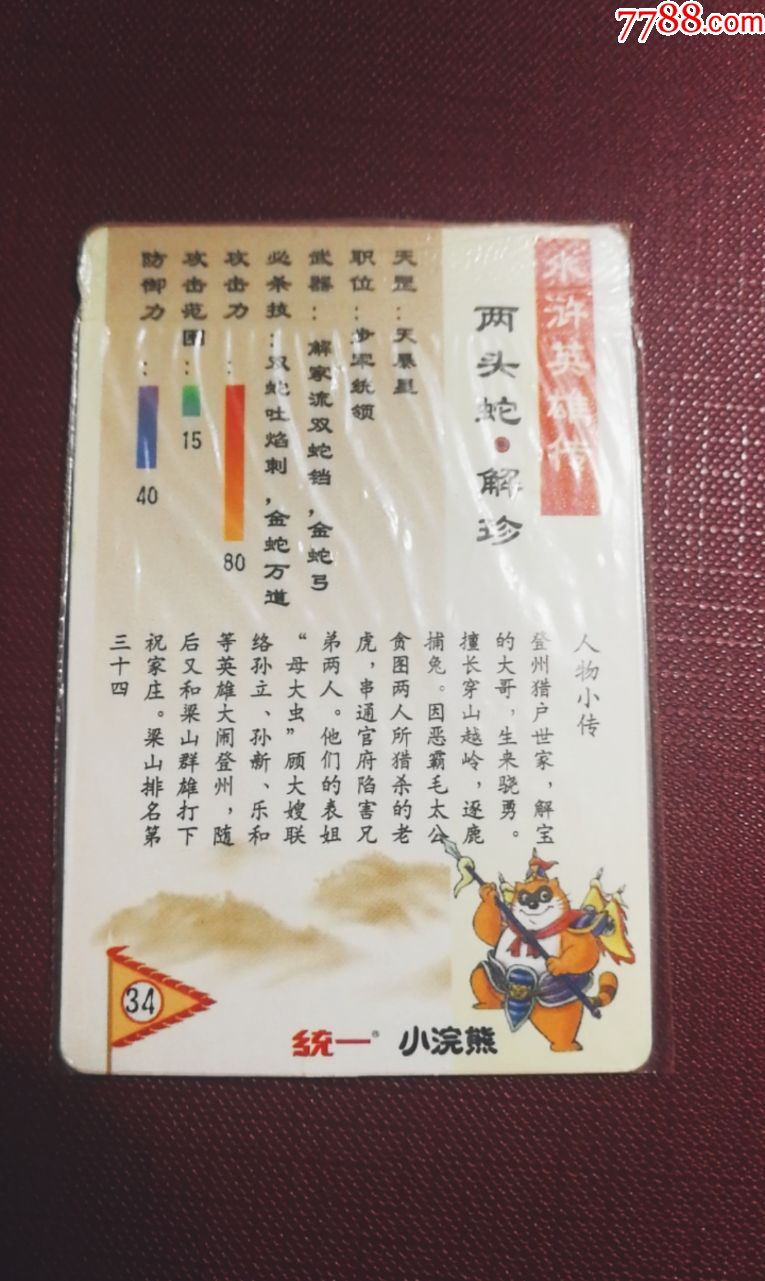 7788.com
水浒英雄传
两头蛇·解珍
天罡：天暴星
职位：步军统领
武器：解家流双蛇镋，金蛇弓
必杀技：双蛇吐焰刺，金蛇万道
攻击力：80
攻击范围：15
防御力：40
人物小传
登州猎户世家，解宝
的大哥，生来骁勇。
擅长穿山越岭，逐鹿
捕兔。因恶霸毛太公
贪图两人所猎杀的老
虎，串通官府陷害兄
弟两人。他们的表姐
“母大虫”顾大嫂联
络孙立、孙新、乐和
等英雄大闹登州，随
后又和梁山群雄打下
祝家庄。梁山排名第
三十四
34
统一® 小浣熊